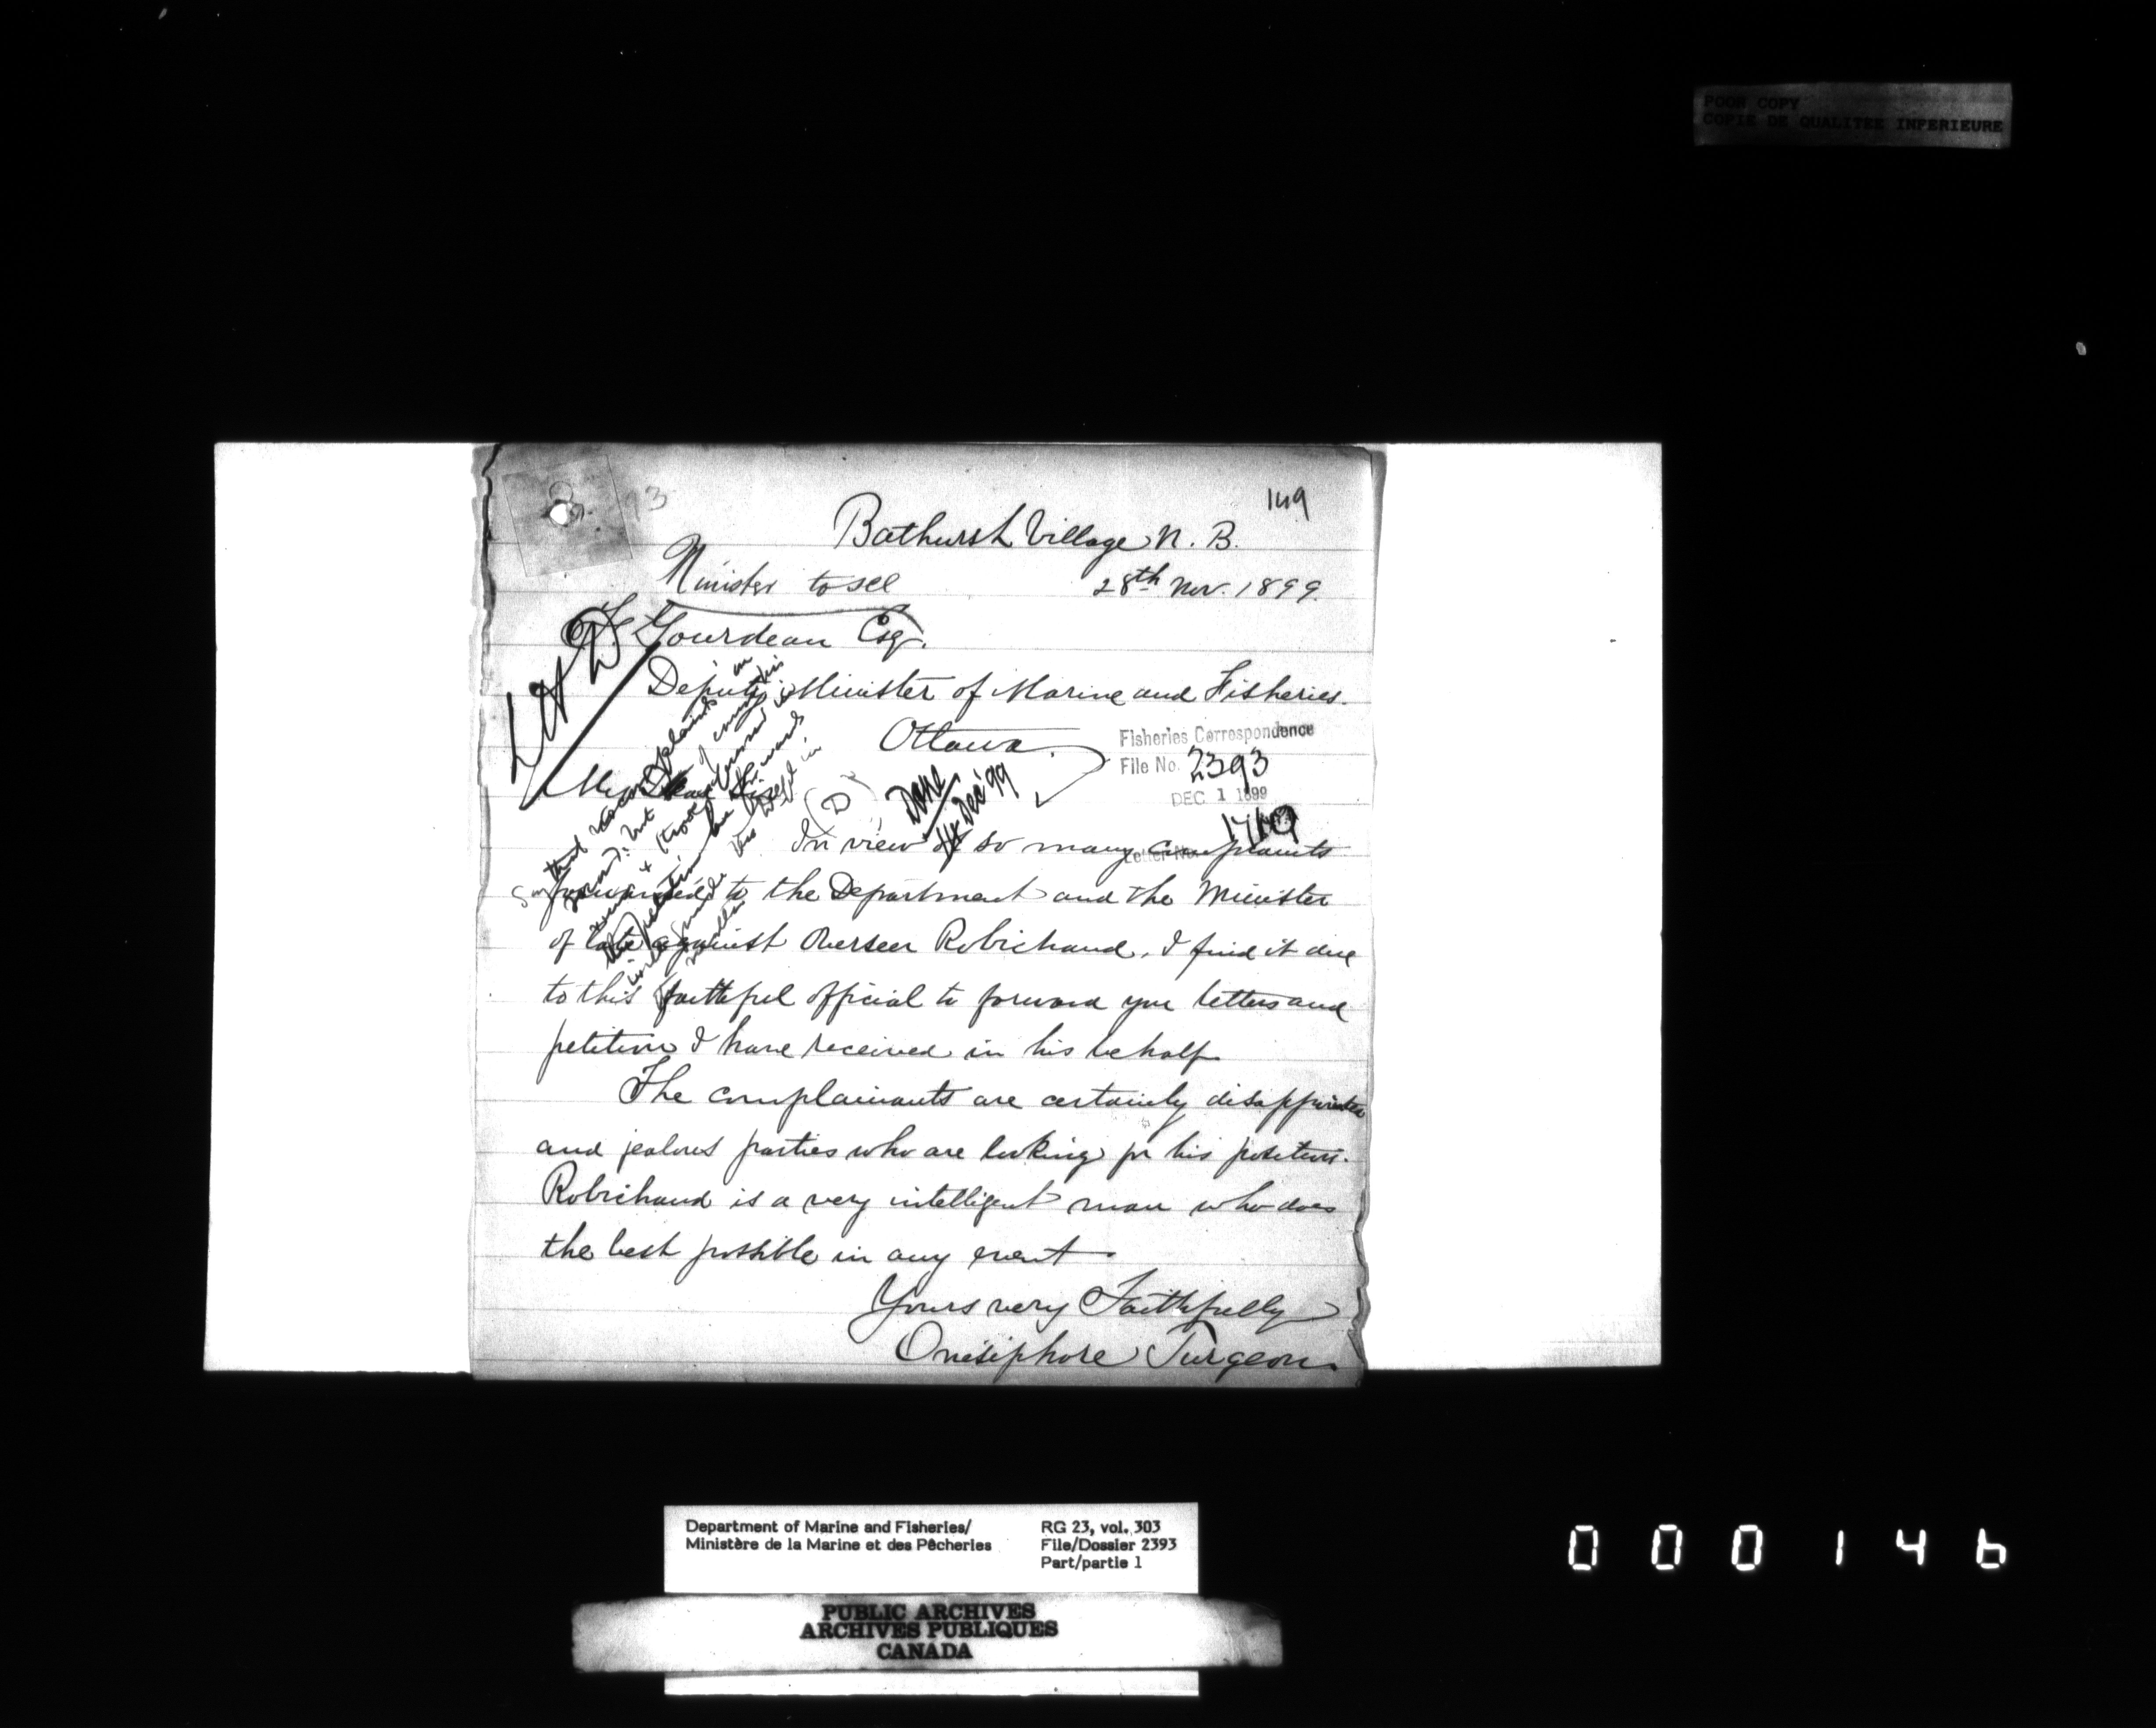 POOR COPY
COPIE DE QUALITEE INFERIEURE
149
93
Bathurst Village N. B.
Minister to see
28th Nov. 1899.
Gourdeau Esq.
Deputy Minister of Marine and Fisheries.
Ottawa.
Fisheries Correspondence
File No. 2393
DEC 1 1899
Letter No.
My Dear Sir
(D)
Done
Dec '99
In view of so many complaints
forwarded to the Department and the Minister
of late against Overseer Robichaud, I find it due
to this faithful official to forward you letters and
petition I have received in his behalf.
The complainants are certainly disappointed
and jealous parties who are looking for his position.
Robichaud is a very intelligent man who does
the best possible in any event.
Yours very Faithfully
Onésiphore Turgeon.
Department of Marine and Fisheries/
Ministère de la Marine et des Pêcheries
RG 23, vol. 303
File/Dossier 2393
Part/partie 1
PUBLIC ARCHIVES
ARCHIVES PUBLIQUES
CANADA
000146